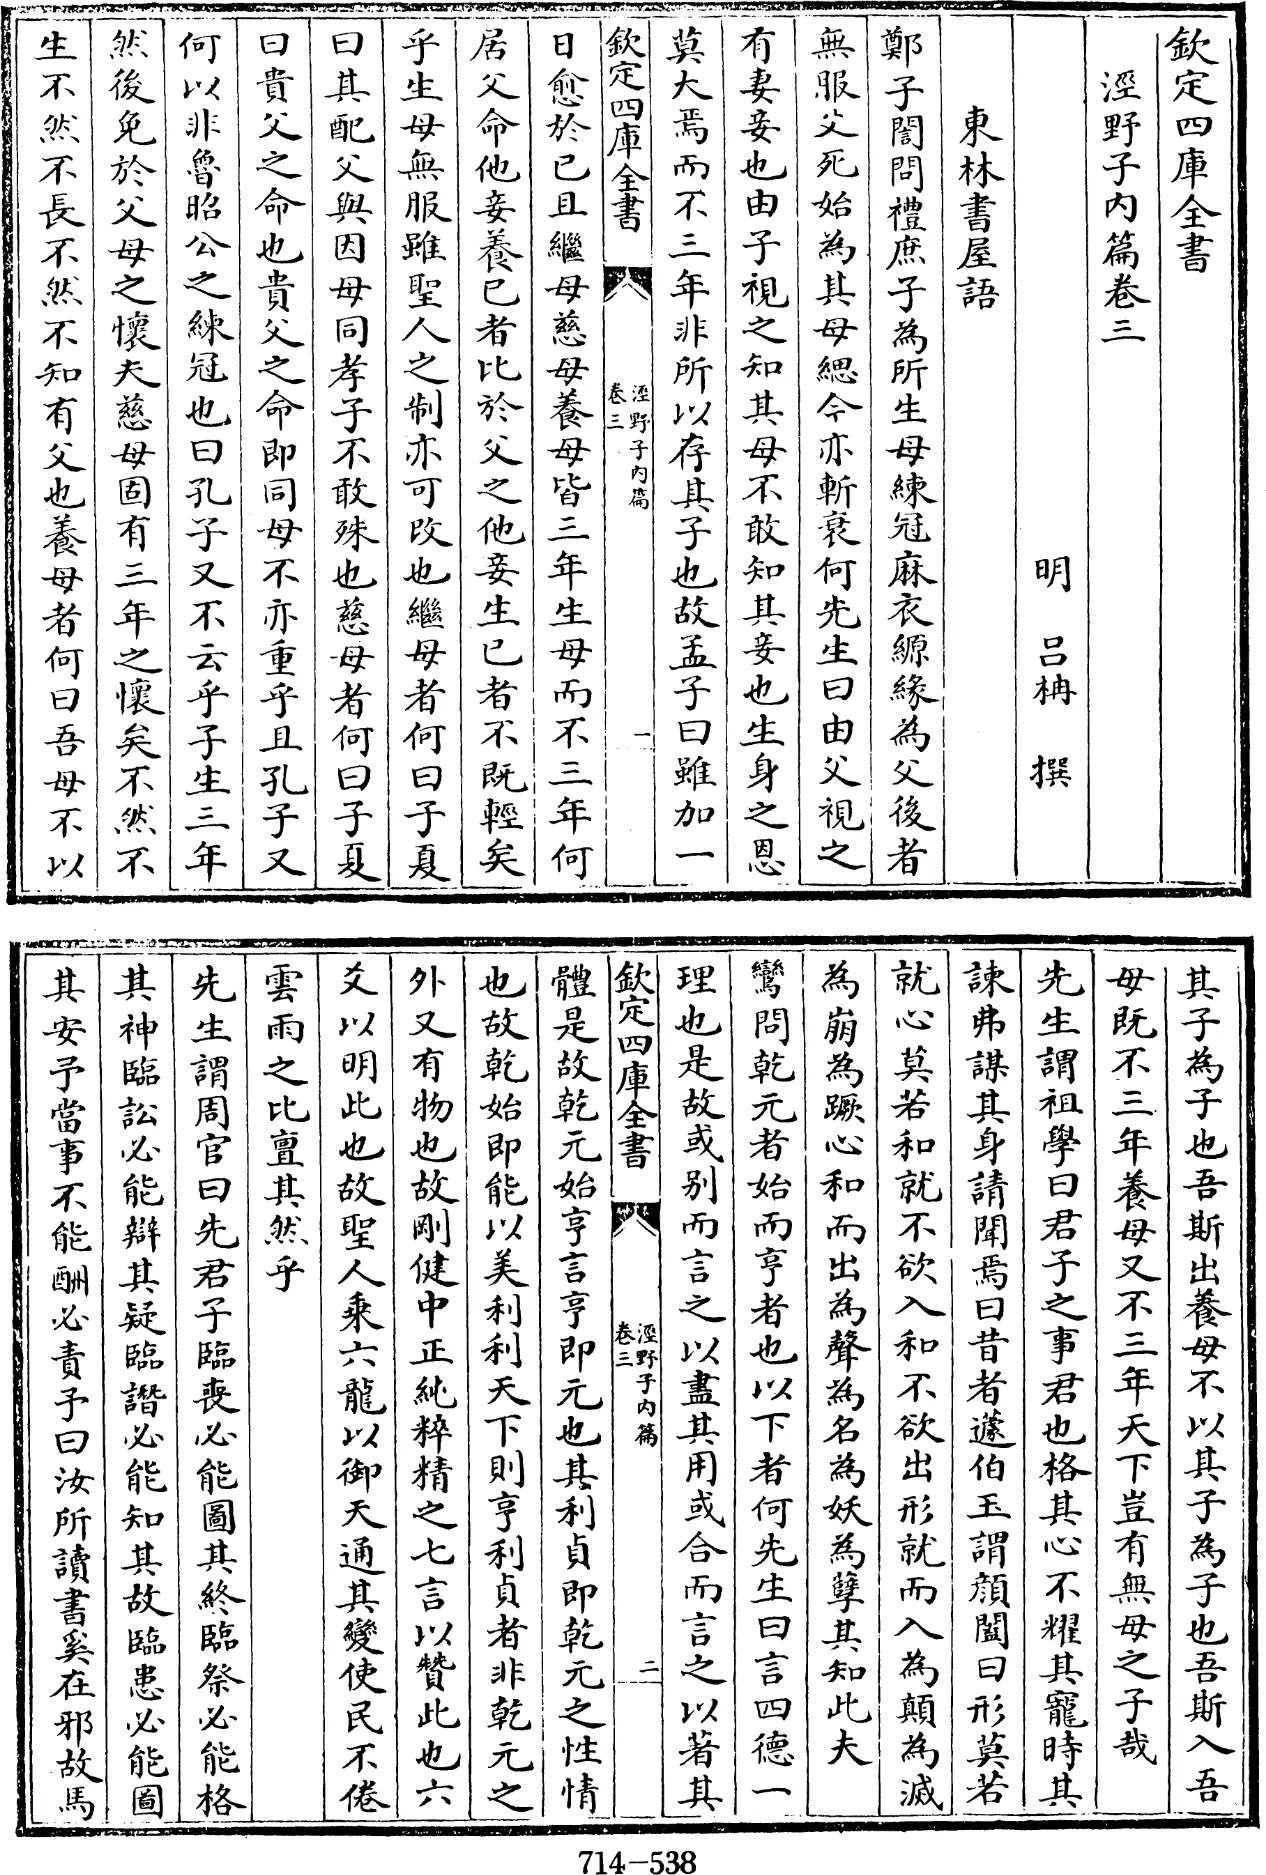 欽定四庫全書
涇野子內篇卷三
明 呂柟 撰
東林書屋語
鄭子誾問禮庶子為所生母練冠麻衣縓緣為父後者
無服父死始為其母緦今亦斬衰何先生曰由父視之
有妻妾也由子視之知其母不敢知其妾也生身之恩
莫大焉而不三年非所以存其子也故孟子曰雖加一
欽定四庫全書
涇野子內篇
卷三
一
日愈於已且繼母慈母養母皆三年生母而不三年何
居父命他妾養己者比於父之他妾生己者不既輕矣
乎生母無服雖聖人之制亦可改也繼母者何曰子夏
曰其配父與因母同孝子不敢殊也慈母者何曰子夏
曰貴父之命也貴父之命即同母不亦重乎且孔子又
何以非魯昭公之練冠也曰孔子又不云乎子生三年
然後免於父母之懷夫慈母固有三年之懷矣不然不
生不然不長不然不知有父也養母者何曰吾母不以
其子為子也吾斯出養母不以其子為子也吾斯入吾
母既不三年養母又不三年天下豈有無母之子哉
先生謂祖學曰君子之事君也格其心不耀其寵時其
諫弗謀其身請聞焉曰昔者蘧伯玉謂顏闔曰形莫若
就心莫若和就不欲入和不欲出形就而入為顛為滅
為崩為蹶心和而出為聲為名為妖為孽其知此夫
鸞問乾元者始而亨者也以下者何先生曰言四德一
理也是故或別而言之以盡其用或合而言之以著其
欽定四庫全書
涇野子內篇
卷三
二
體是故乾元始亨言亨即元也其利貞即乾元之性情
也故乾始即能以美利利天下則亨利貞者非乾元之
外又有物也故剛健中正純粹精之七言以贊此也六
爻以明此也故聖人乘六龍以御天通其變使民不倦
雲雨之比亶其然乎
先生謂周官曰先君子臨喪必能圖其終臨祭必能格
其神臨訟必能辯其疑臨譖必能知其故臨患必能圖
其安予當事不能酬必責予曰汝所讀書奚在邪故馬
714-538